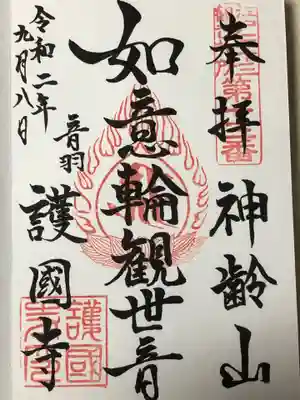 奉拝
神齢山
如意輪観世音
音羽
護國寺
令和二年
九月八日
護國